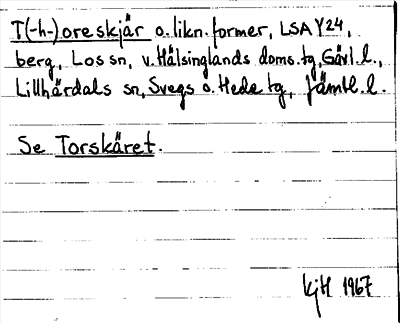 T(-h-)oreskjär o. likn. former, LSA Y24,
berg, Los sn, v. Hälsinglands doms. tg, Gävl. l.,
Lillhärdals sn, Svegs o. Hede tg, Jämtl. l.
Se Torskäret.
kjH 1967